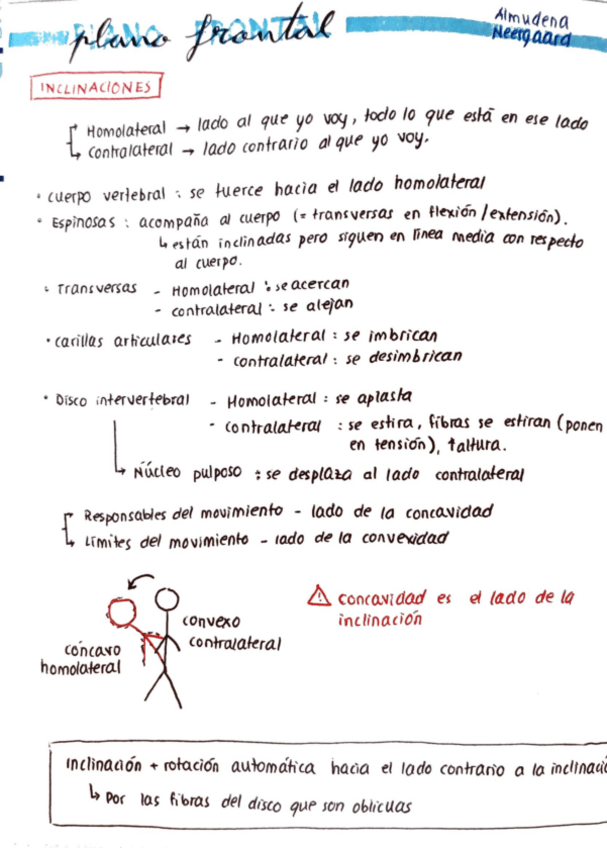 plano frontal
Almudena
Neergaard
INCLINACIONES
Homolateral → lado al que yo voy, todo lo que está en ese lado
Contralateral → lado contrario al que yo voy.
• cuerpo vertebral : se tuerce hacia el lado homolateral
• Espinosas : acompaña al cuerpo (= transversas en flexión/extensión).
↳ están inclinadas pero siguen en línea media con respecto
al cuerpo.
• Transversas - Homolateral : se acercan
- contralateral : se alejan
• carillas articulares - Homolateral : se imbrican
- contralateral : se desimbrican
• Disco intervertebral - Homolateral : se aplasta
- contralateral : se estira, fibras se estiran (ponen
en tensión), ↑altura.
↳ Núcleo pulposo : se desplaza al lado contralateral
Responsables del movimiento - lado de la concavidad
Límites del movimiento - lado de la convexidad
⚠ concavidad es el lado de la
inclinación
convexo
contralateral
cóncavo
homolateral
inclinación + rotación automática hacia el lado contrario a la inclinació
↳ Por las fibras del disco que son oblicuas